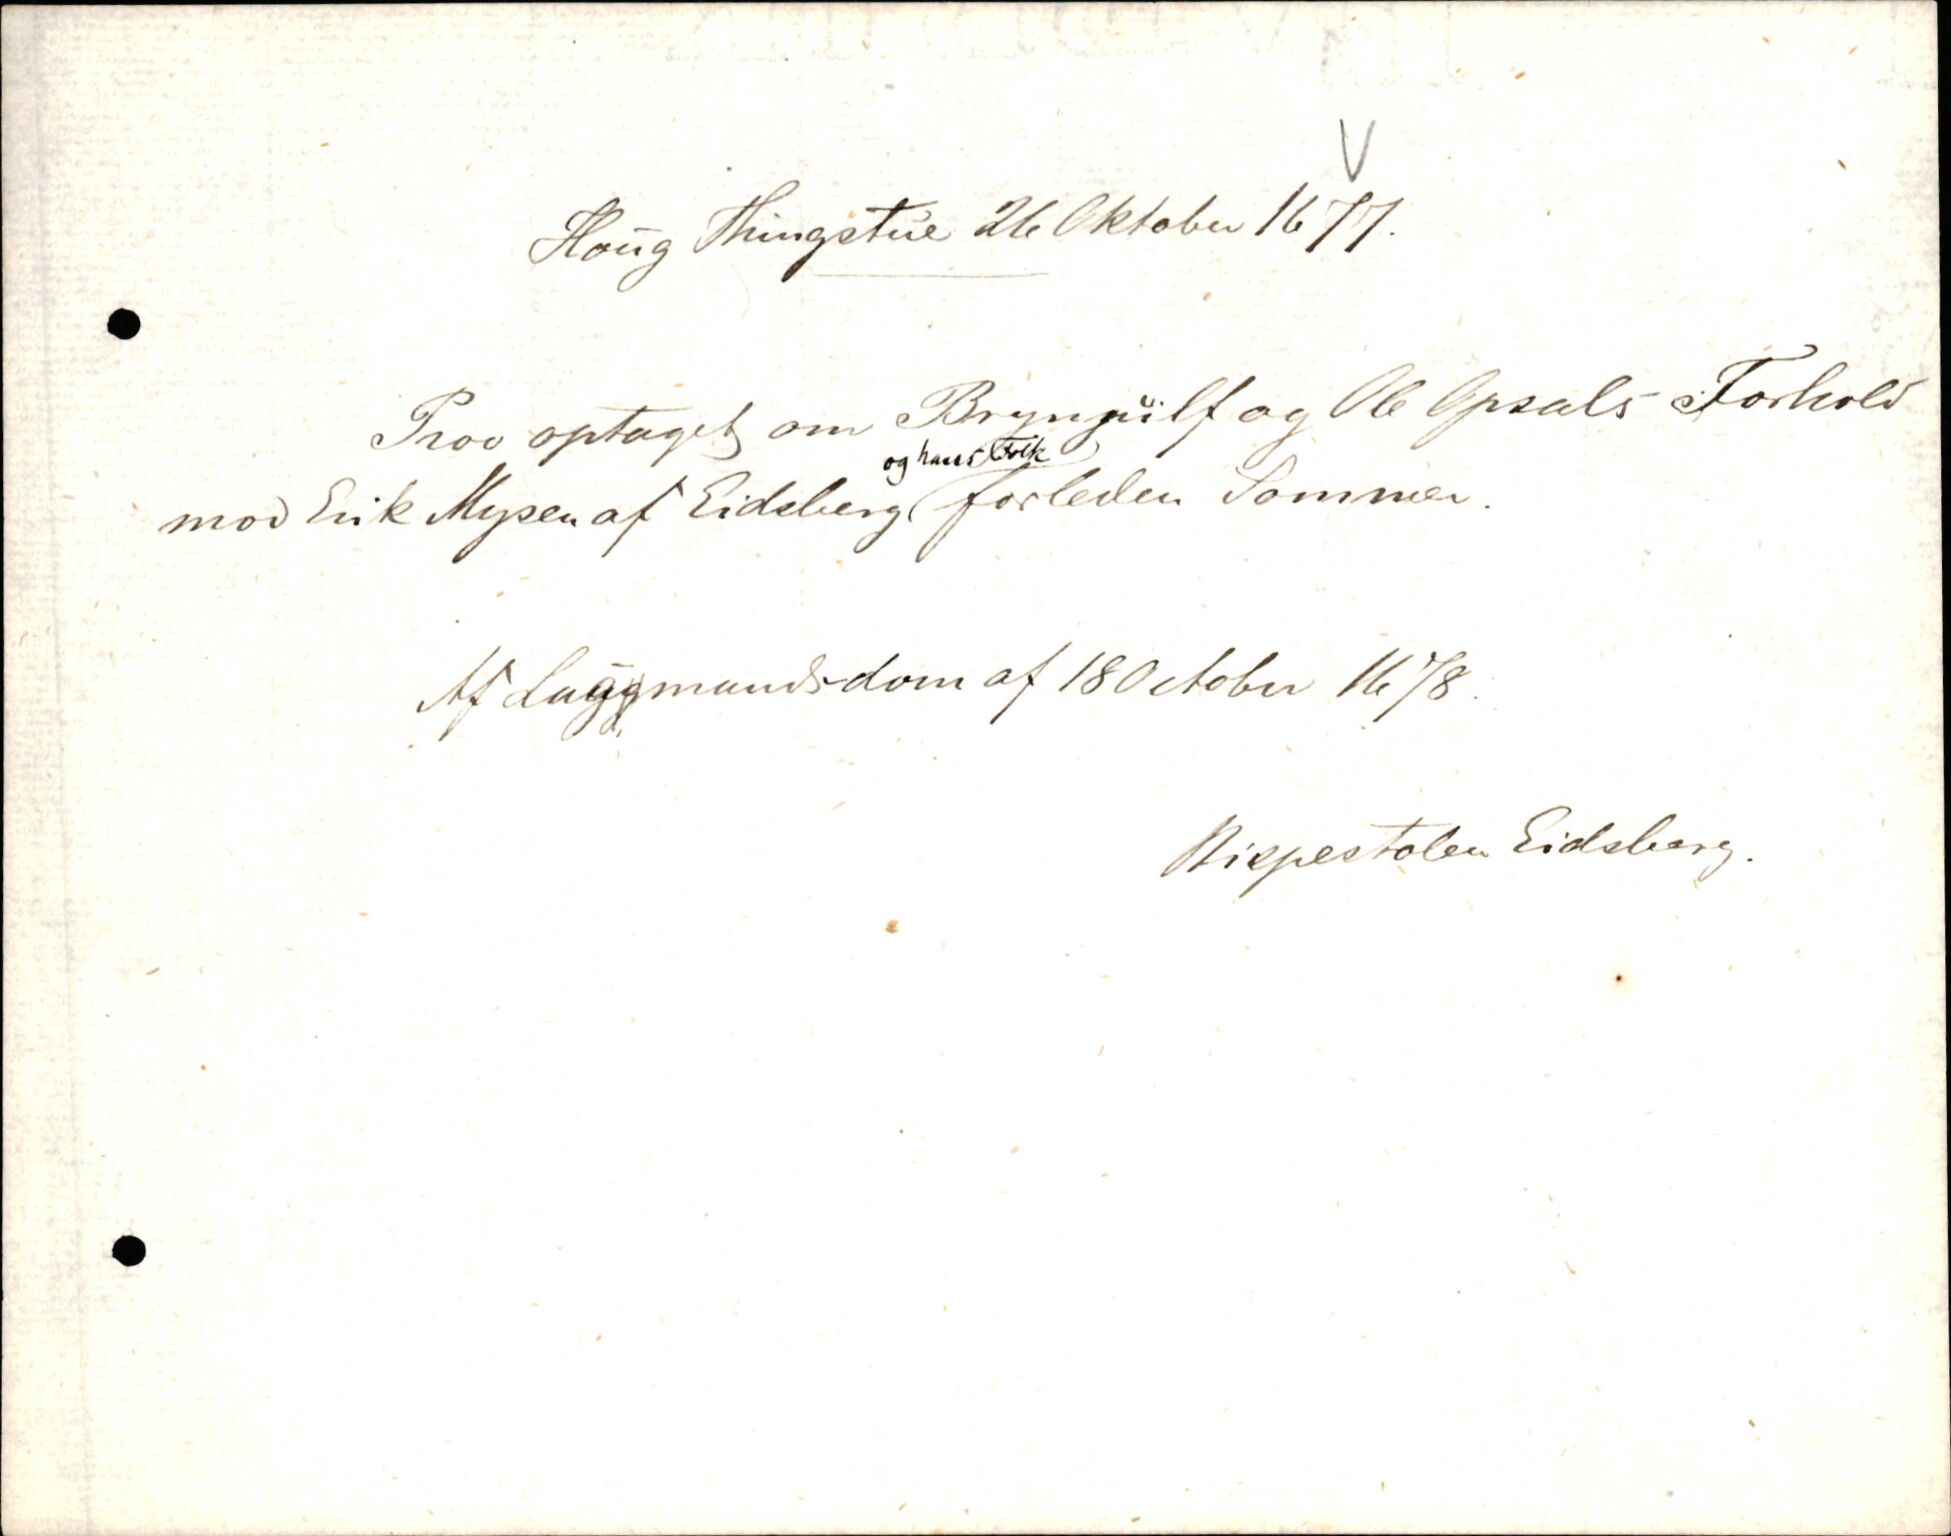 V
Houg Thingstue 26 Oktober 1677.
Prov optaget om Bryngulf og Ole Opsals Forhold
og hans Folk
mod Erik Mysen af Eidsberg forleden Sommer.
Af Laugmandsdom af 18 October 1678.
Bispestolen Eidsberg.